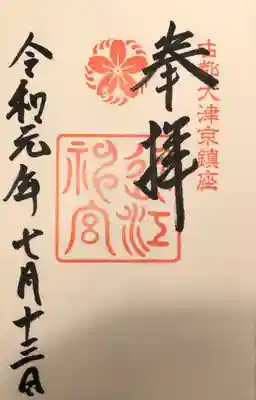 古都大津京鎮座
奉拝
近江神宮
令和元年七月十三日